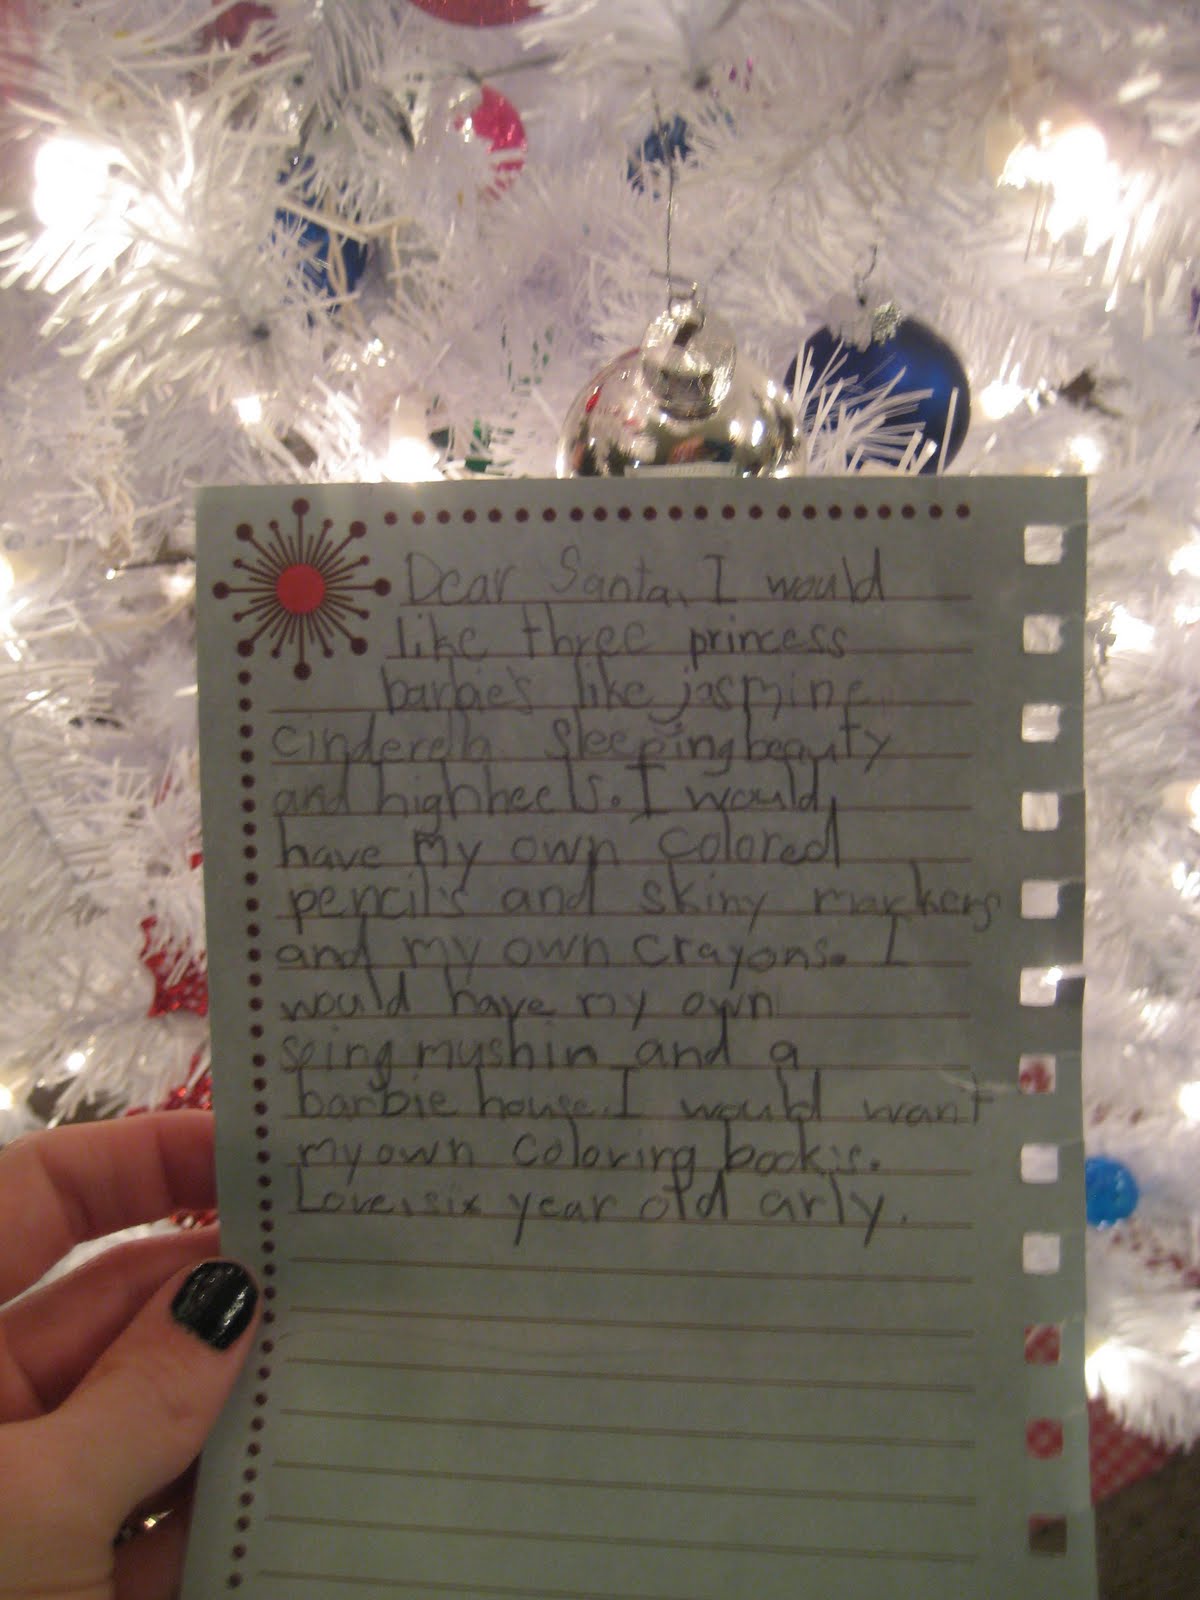 Dear Santa, I would
like three princess
barbie's like jasmine
cinderella sleeping beauty
and highheels. I would
have my own colored
pencil's and skiny markers
and my own crayons. I
would have my own
soing mushin and a
barbie house. I would want
my own coloring book's.
Love, six year old arly.